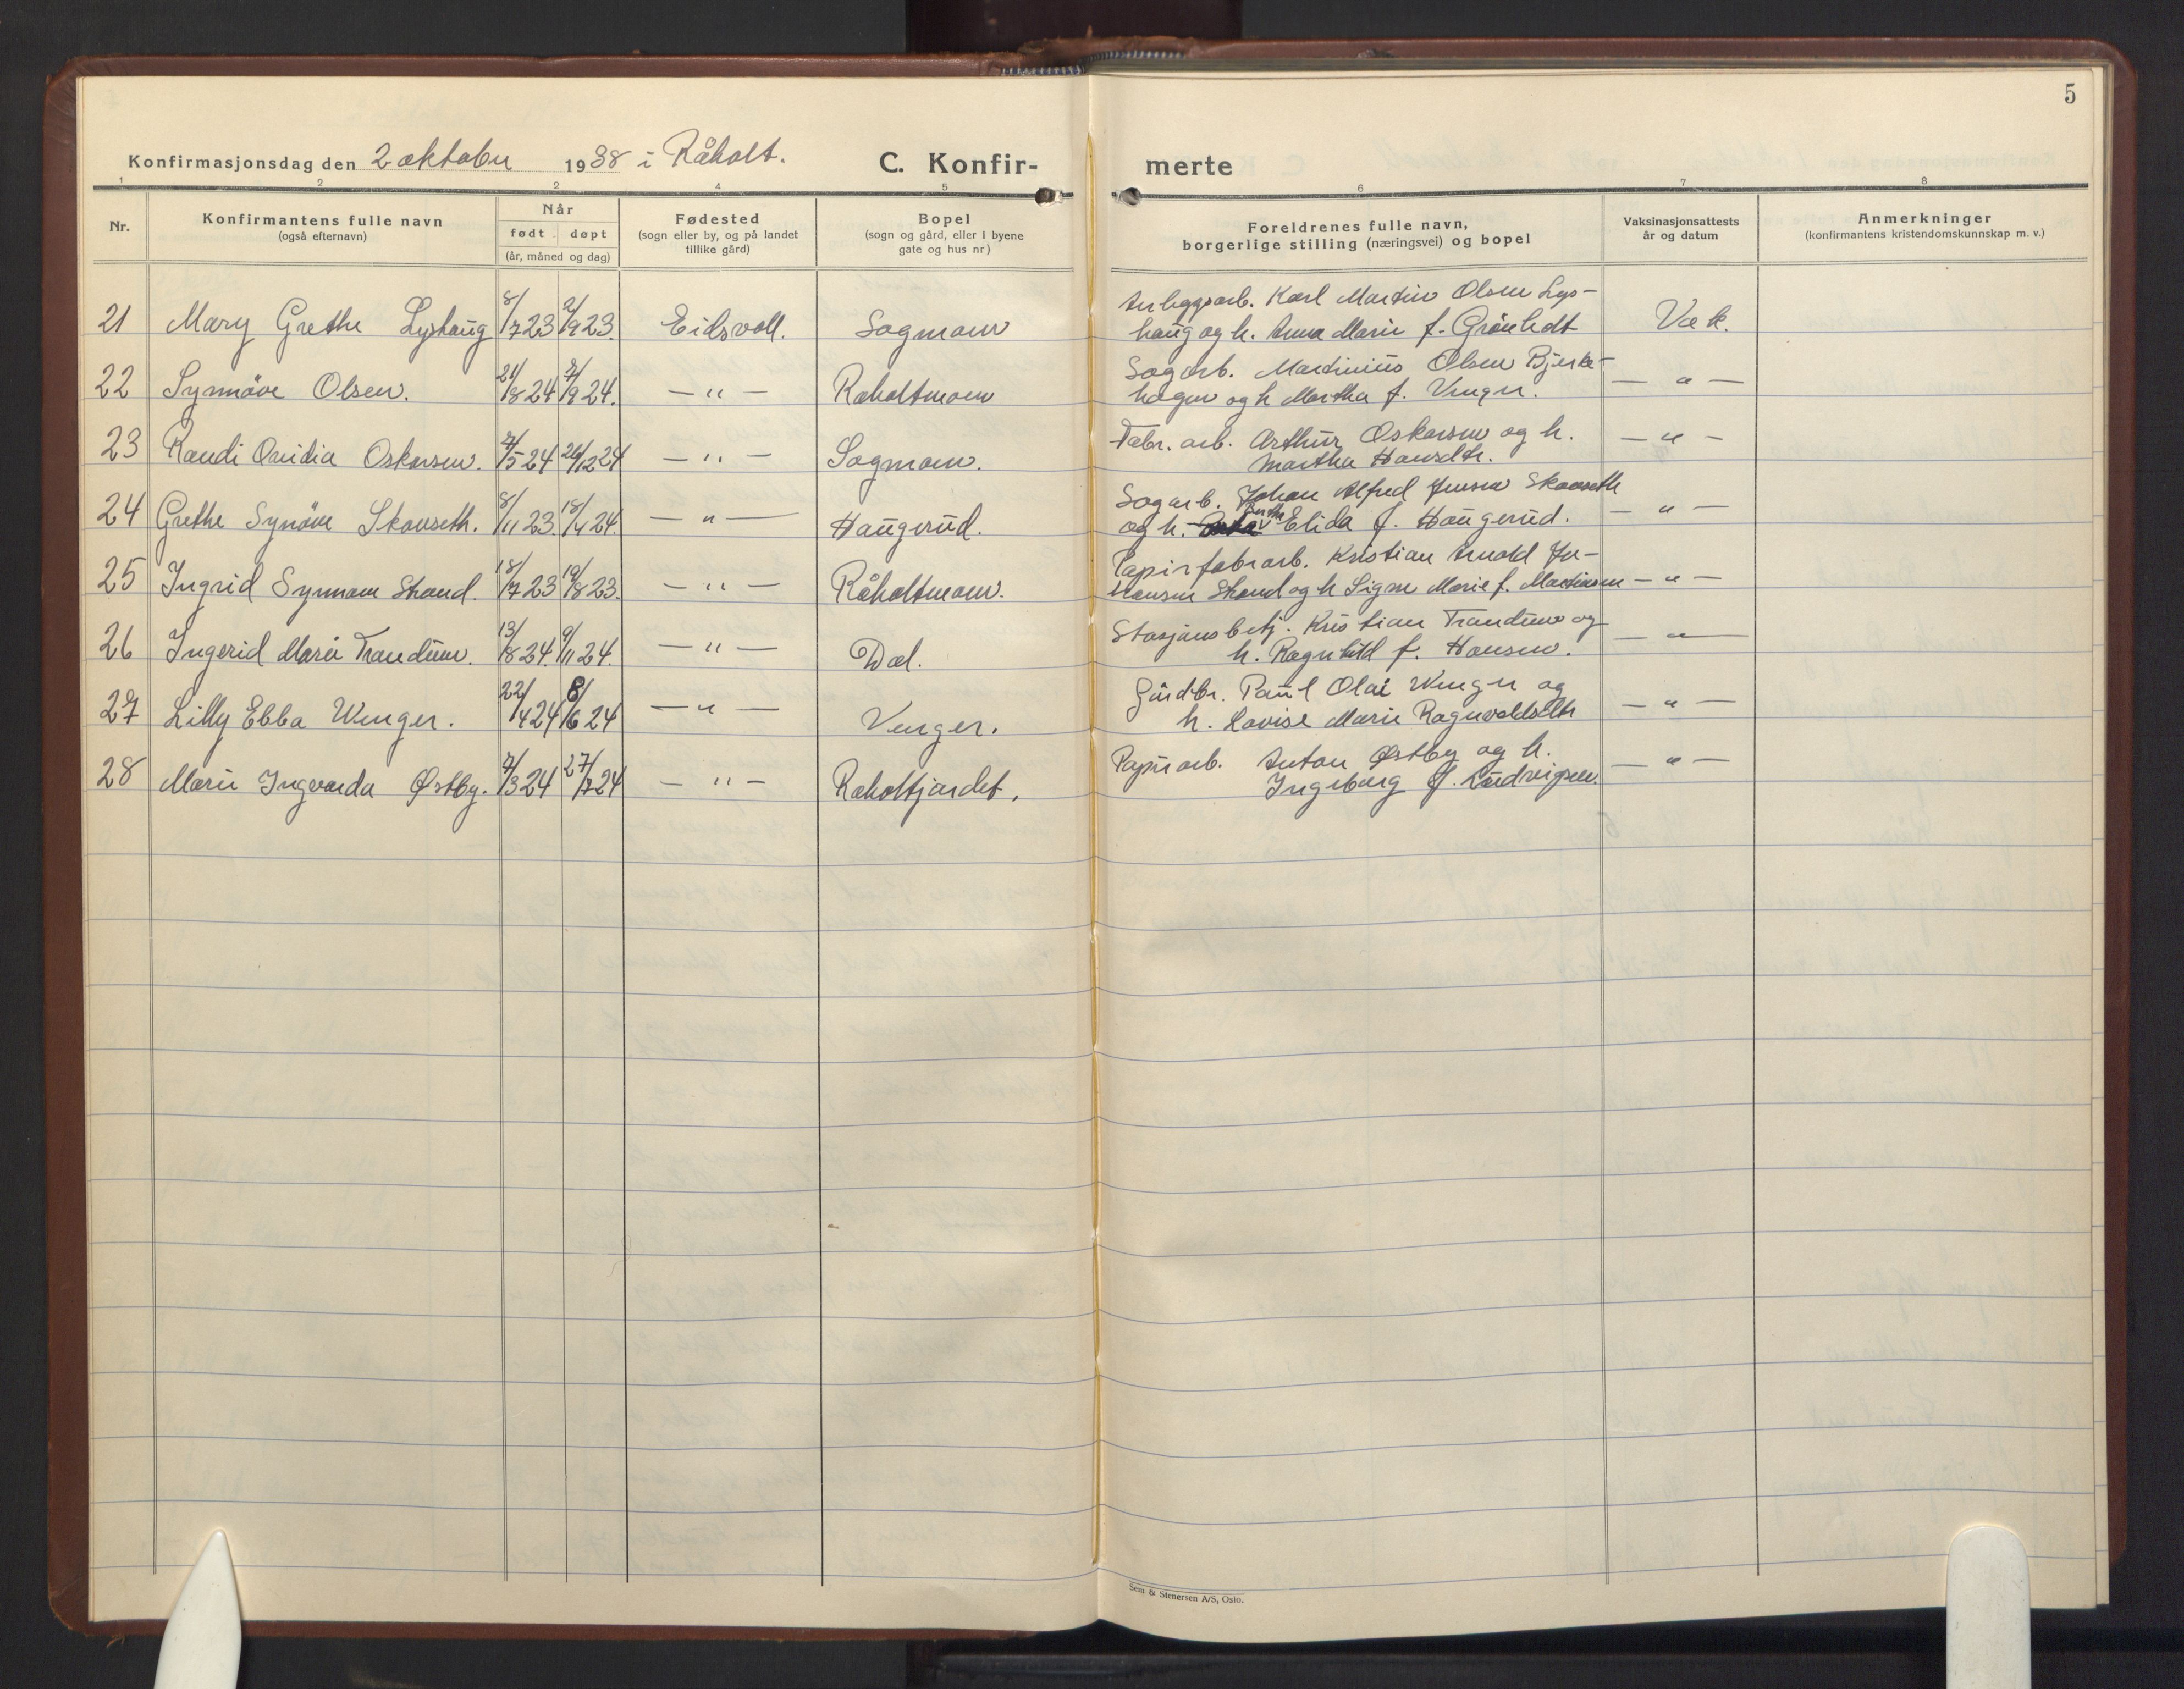 5
Konfirmasjonsdag den 2 oktober 1938 i Råholt. C. Konfir- merte
1 2 2 4 5 6 7 8
Nr. Konfirmantens fulle navn (også efternavn) Når født døpt (år, måned og dag) Fødested (sogn eller by, og på landet tillike gård) Bopel (sogn og gård, eller i byene gate og hus nr) Foreldrenes fulle navn, borgerlige stilling (næringsvei) og bopel Vaksinasjonsattests år og datum Anmerkninger (konfirmantens kristendomskunnskap m. v.)
21 Mary Grethe Lyshaug 8/7 23 2/9 23. Eidsvoll. Sagmoen Anleggsarb. Karl Martin Olsen Lys-
haug og h. Anna Marie f. Grönhedt Vak.
22 Synnöve Olsen. 21/8 24 7/9 24. — " — Raholtmoen Sagarb. Martinius Olsen Bjerke-
hagen og h Martha f. Venger. — " —
23 Randi Ovidia Oskarsen. 7/5 24 26/12 24 — " — Sagmoen. Fabr. arb. Arthur Oskarsen og h.
Martha Hansdtr. — " —
24 Grethe Synöve Skanseth. 8/11 23. 18/4 24. — " — Haugerud. Sagarb. Johan Alfred Jensen Skanseth
og h. Berthe Elida f. Haugerud. — " —
25 Ingrid Synnove Strand. 18/7 23 19/8 23. — " — Råholtmoen. Papirfabrarb. Kristian Arnold Jo-
hansen Strand og h Signe Marie f. Martinsen — " —
26 Ingerid Marie Trandum. 13/8 24. 9/11 24. — " — Dal. Stasjonsbetj. Kristian Trandum og
h. Ragnhild f. Hansen. — " —
27 Lilly Ebba Wenger. 22/4 24 8/6 24 — " — Venger. Gårdbr. Paul Olai Wenger og
h. Lovise Marie Ragnvaldsdtr — " —
28 Marie Ingvarda Østby. 7/3 24 27/7 24 — " — Raholtjordet. Papirarb. Anton Østby og h.
Ingeborg f. Ludvigsen. — " —
Sem & Stenersen A/S, Oslo.